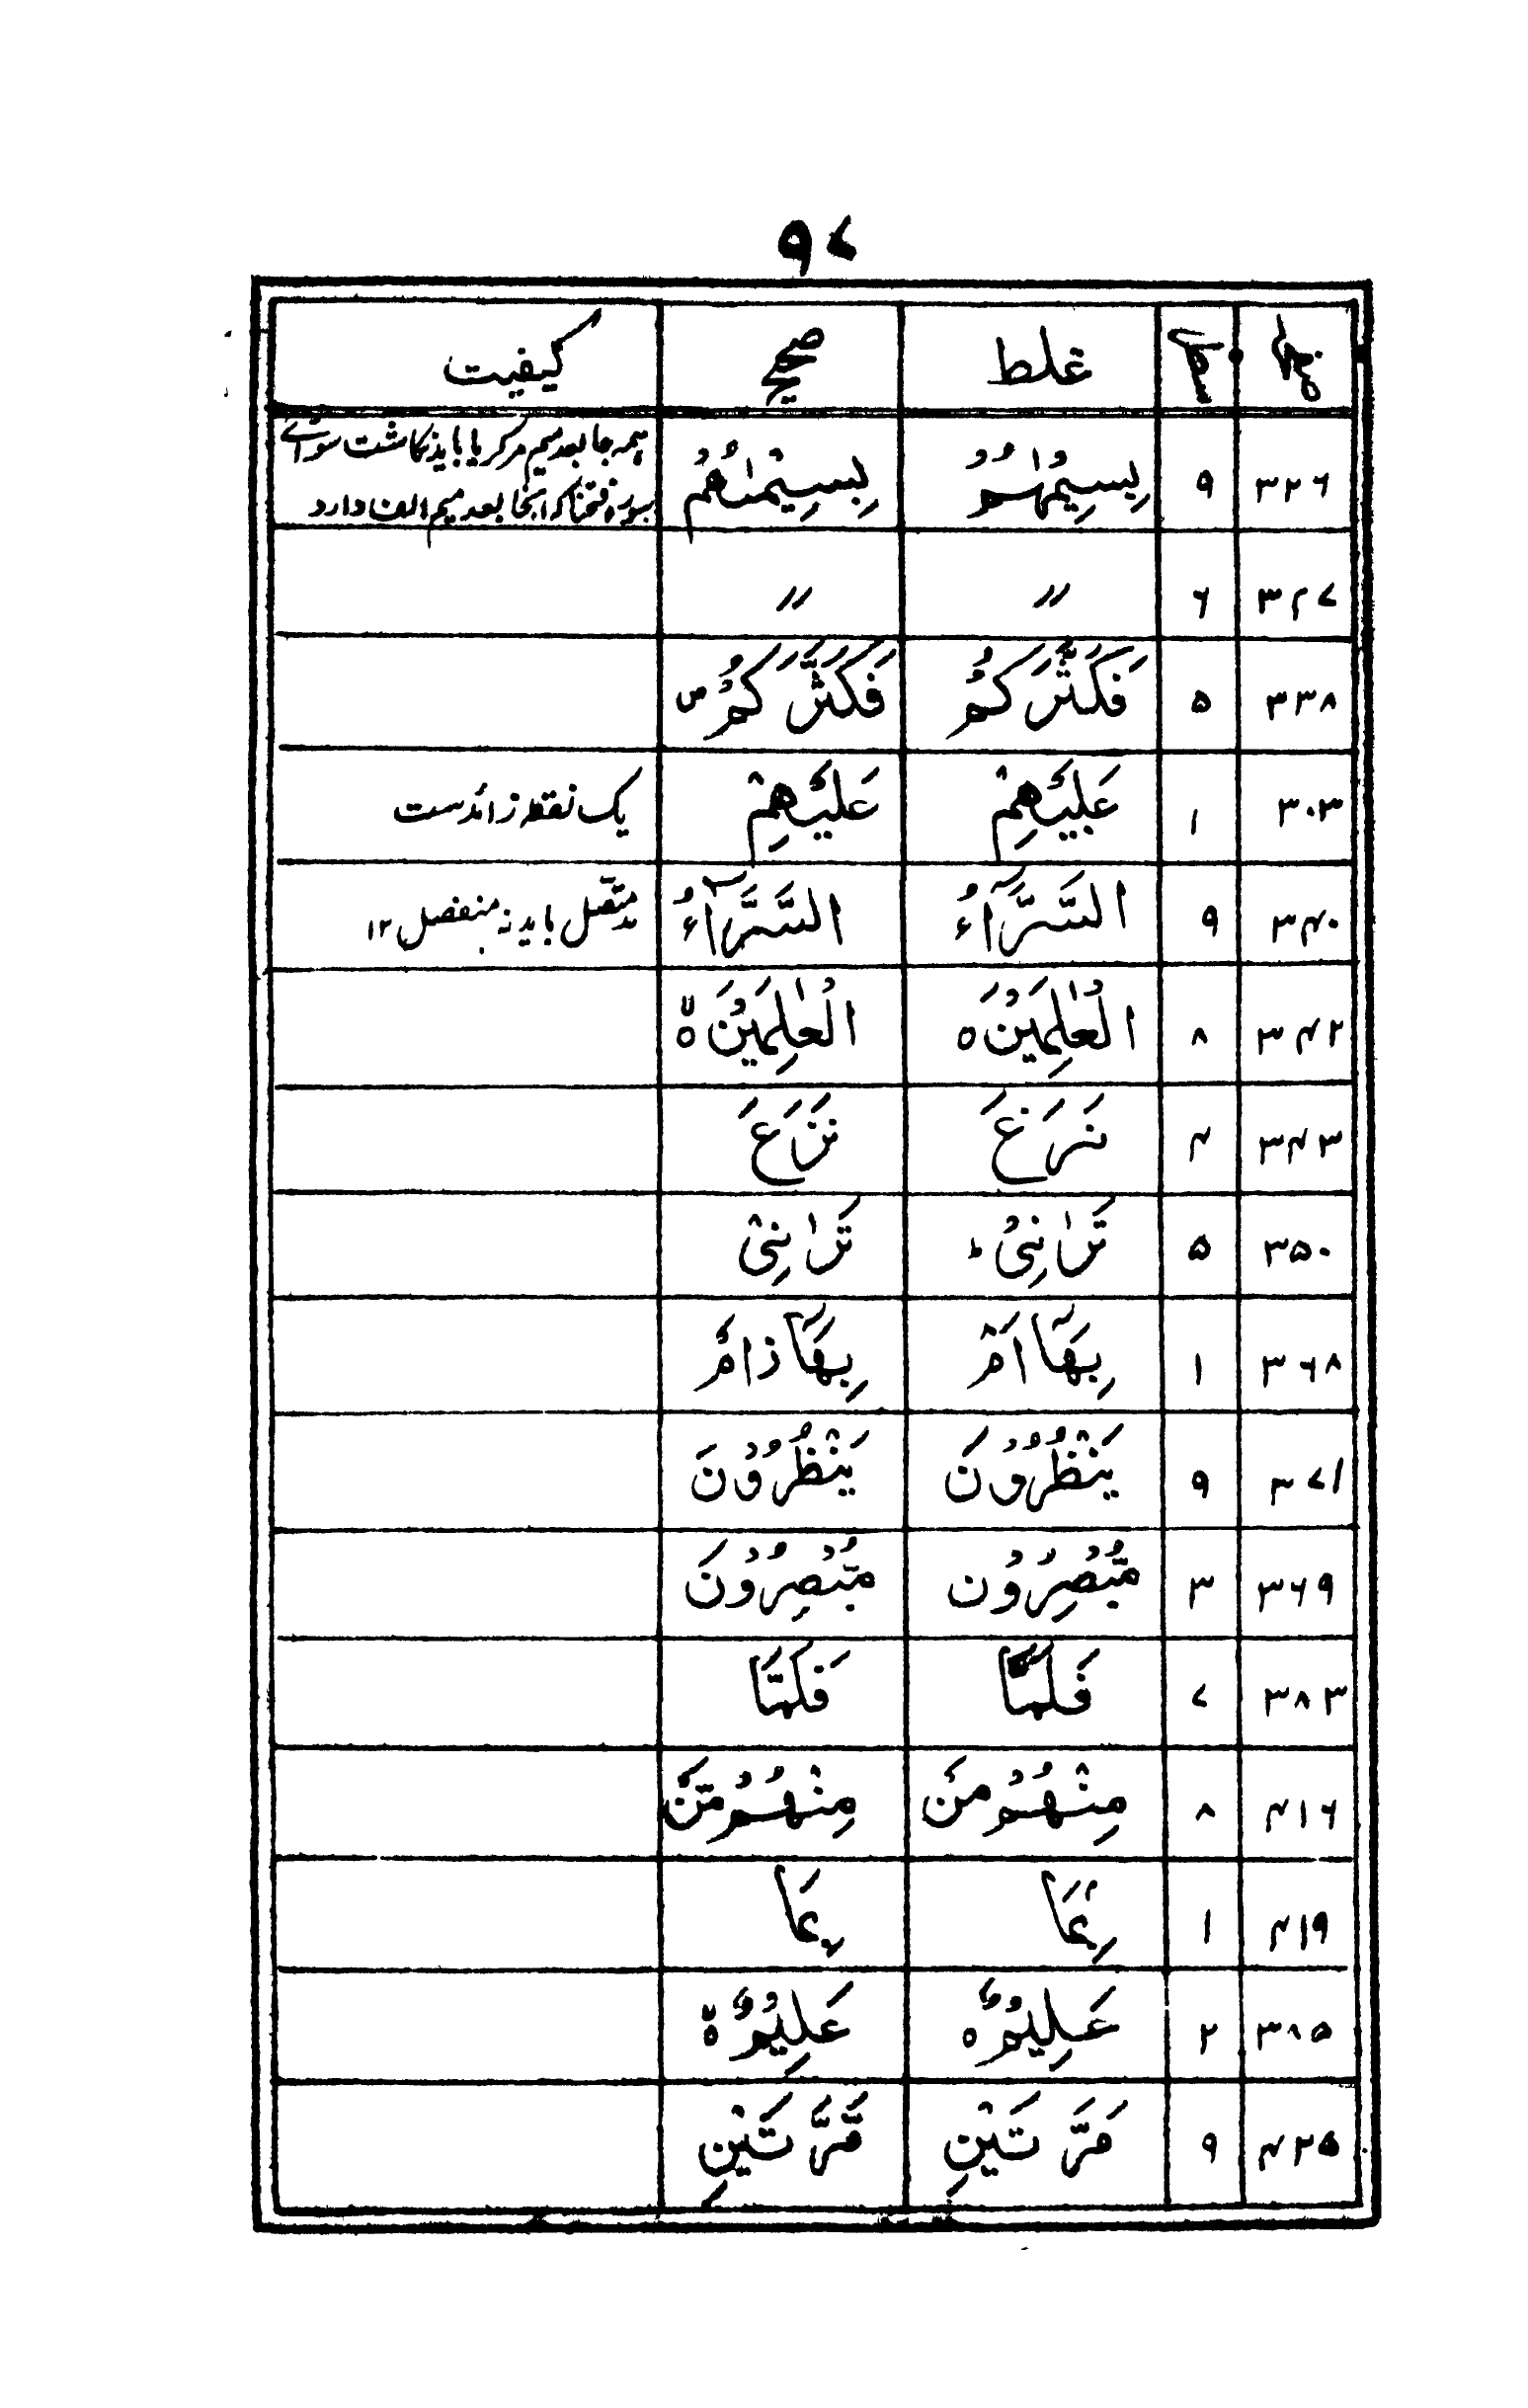 ۹۷
صفحه سطر غلط صحیح کیفیت
۳۲۶ ۹ بِسِیْمٰہُمْ بِسِیْمٰاھُمْ ہمہ جا بعد میم مرکز یا باید نگاشت سوائے
سورہ فتح کہ اینجا بعد میم الف دارد
۳۲۷ ۶ // //
۳۳۸ ۵ فَکَثَّرَکُمْ فَکَثَّرَکُمْ ص
۳۰۳ ۱ عَلَیْھِمْ عَلَیْھِمْ یک نقطہ زائدست
۳۴۰ ۹ السَّرَّآءُ السَّرَّآءُ مد متصل باید نہ منفصل ۱۲
۳۴۲ ۸ الْعٰلِمَیْنَ ہ الْعٰلِمَیْنَ ۃ
۳۴۳ ۴ نَرَغَ نَزَعَ
۳۵۰ ۵ تَرٰانِیْ ط تَرٰانِیْ
۳۶۸ ۱ بِھَآ اَمْ بِھَآ ز اَمْ
۳۷۱ ۹ یَنْظُرُوْنَ یَنْظُرُوْنَ
۳۶۹ ۳ مُّبْصِرُوْن مُّبْصِرُوْنَ
۳۸۳ ۷ فَلَمَّا فَلَمَّا
۴۱۶ ۸ مِنْھُمْ مَنْ مِنْھُمْ مَّنْ
۴۱۹ ۱ بِمَا بِمَا
۳۸۵ ۲ عَلِیْمٌ ہ عَلِیْمٌ ۃ
۴۲۵ ۹ مَرَّتَیْنِ مَّرَّتَیْنِ